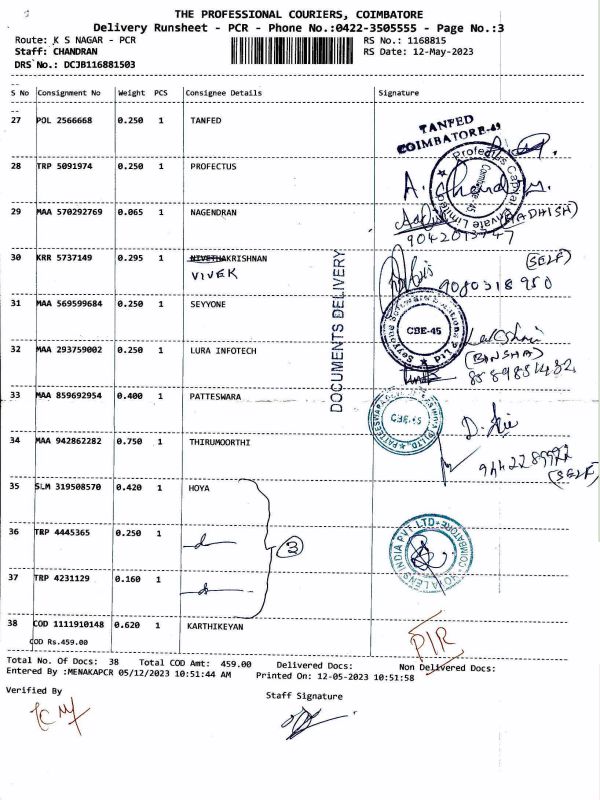 THE PROFESSIONAL COURIERS, COIMBATORE
Delivery Runsheet - PCR - Phone No.:0422-3505555 - Page No.:3
Route: K S NAGAR - PCR
RS No.: 1168815
Staff: CHANDRAN
RS Date: 12-May-2023
DRS No.: DCJB116881503
S No Consignment No Weight PCS Consignee Details Signature
27 POL 2566668 0.250 1 TANFED
TANFED
COIMBATORE-43
28 TRP 5091974 0.250 1 PROFECTUS
Profectus Capital Private Limited
Coimbatore-45
29 MAA 570292769 0.065 1 NAGENDRAN
(AADHISH)
30 KRR 5737149 0.295 1 NIVETHAKRISHNAN
VIVEK
(SELF)
9080318950
DOCUMENTS DELIVERY
31 MAA 569599684 0.250 1 SEYYONE
CBE-45
32 MAA 293759002 0.250 1 LURA INFOTECH
(BINSHA)
33 MAA 859692954 0.400 1 PATTESWARA
CBE-45
34 MAA 942862282 0.750 1 THIRUMOORTHI
(SELF)
35 SLM 319508570 0.420 1 HOYA
36 TRP 4445365 0.250 1
3
HOYA LENS INDIA PVT. LTD COIMBATORE
37 TRP 4231129 0.160 1
38 COD 1111910148 0.620 1 KARTHIKEYAN
COD Rs.459.00
Total No. Of Docs: 38 Total COD Amt: 459.00 Delivered Docs: Non Delivered Docs:
Entered By :MENAKAPCR 05/12/2023 10:51:44 AM Printed On: 12-05-2023 10:51:58
Verified By
Staff Signature